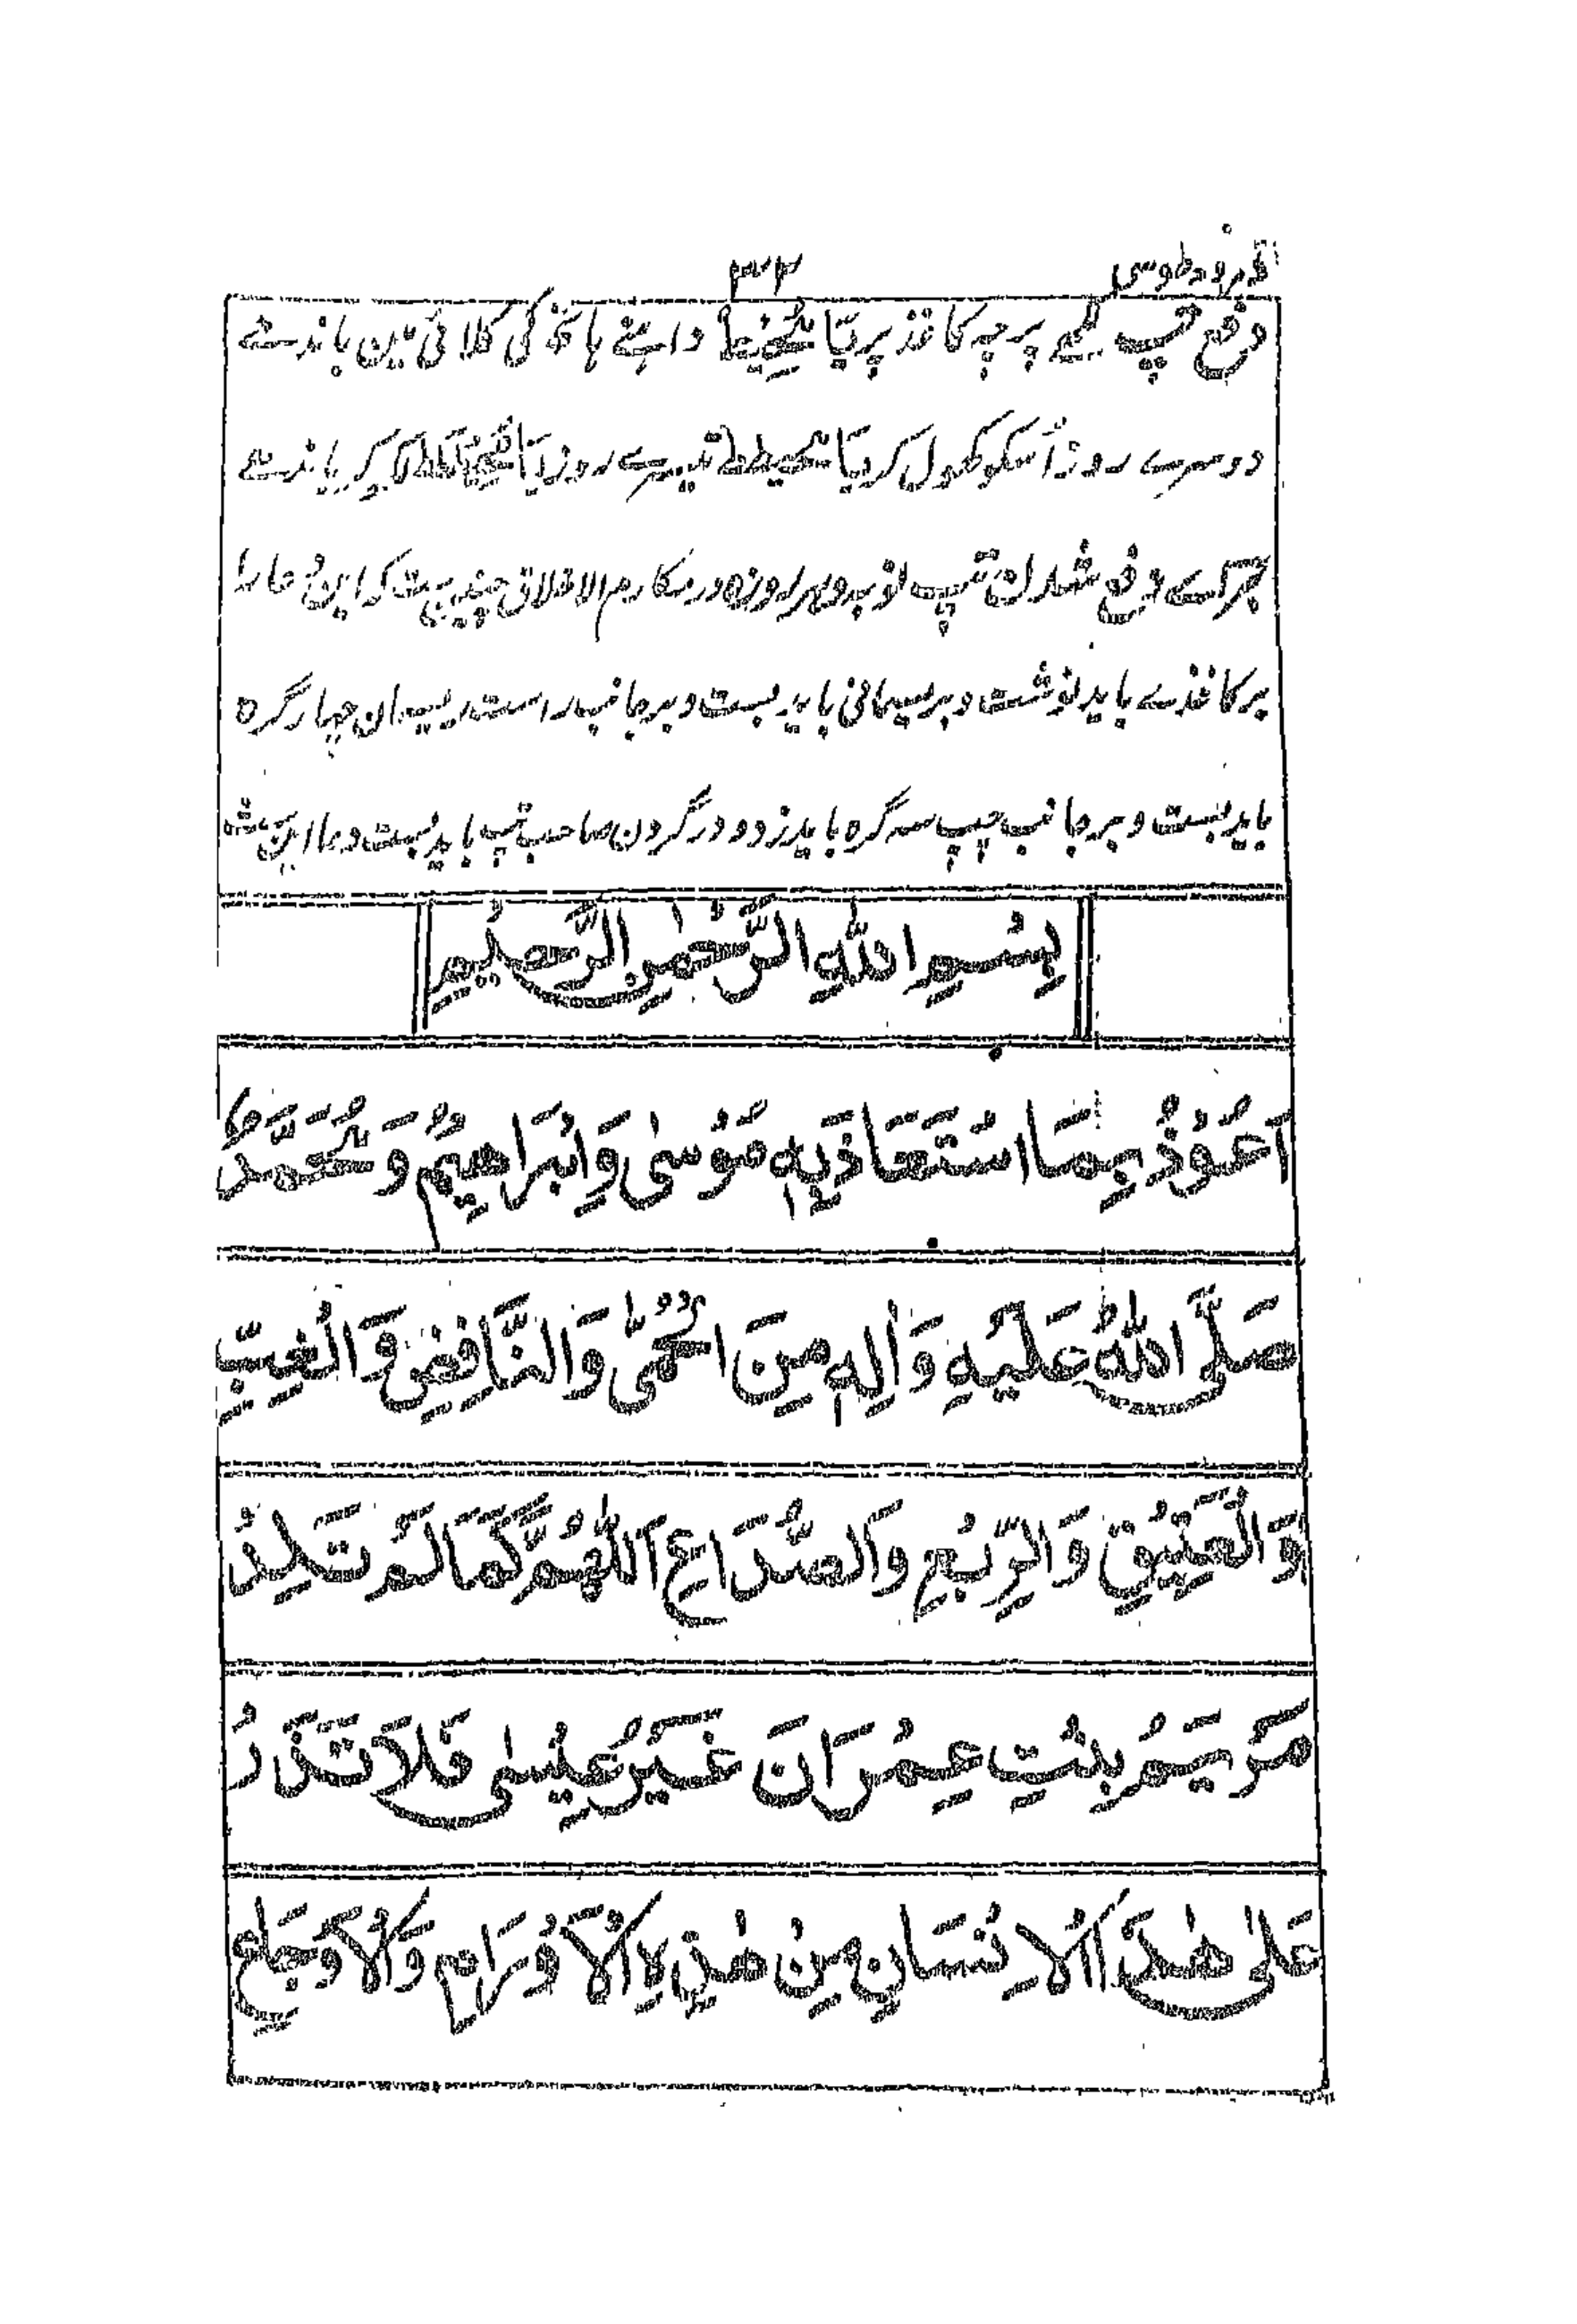 درود طوسی
۳۴
دفع تپ لکھے پرچہ کاغذ پر یَا داہنے ہاتھ کی کلائی مین باندھے
دوسرے روز اُسکو کھول کر یَا تیسرے روز یَا باندھے
دفع شدن تپ نوبہ و ہر روزہ در مکارم الاخلاق چنینست کہ این دعا را
بر کاغذے باید نوشت و بریسمانی باید بست و بر جانب راست ریسمان چہار گرہ
باید بست و بر جانب چپ سہ گرہ باید زد و در گردن صاحب تپ باید بست دعا این ست
بِسْمِ اللّٰهِ الرَّحْمٰنِ الرَّحِيْمِ
اَعُوْذُ بِمَا اسْتَعَاذَ بِهٖ مُوْسٰى وَاِبْرَاهِيْمُ وَمُحَمَّدٌ
صَلَّى اللّٰهُ عَلَيْهِ وَاٰلِهٖ مِنَ الْحُمّٰى وَالنَّافِضِ وَالْغِبِّ
وَالْعَتِيْقِ وَالرِّبْعِ وَالصُّدَاعِ اَللّٰهُمَّ كَمَا لَمْ تَلِدْ
مَرْيَمُ بِنْتِ عِمْرَانَ غَيْرُ عِيْسٰى فَلَا تَذَرْ
عَلٰى هٰذَا الْاِنْسَانِ مِنْ هٰذِهِ الْاَوْرَامِ وَالْاَوْجَاعِ